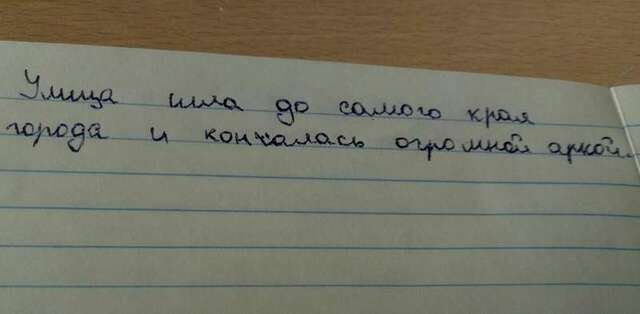 Улица шла до самого края
города и кончалась огромной аркой.